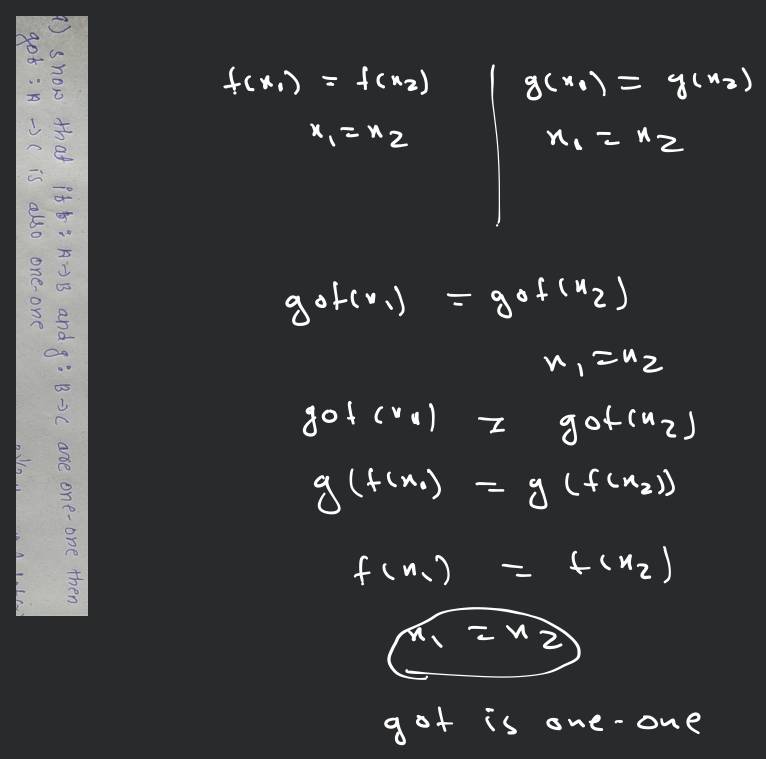 1) show that if f : A → B and g : B → C are one-one then
gof : A → C is also one-one
f(x₁) = f(x₂) | g(x₁) = g(x₂)
x₁ = x₂ | x₁ = x₂
gof(x₁) = gof(x₂)
x₁ = x₂
gof(x₁) = gof(x₂)
g(f(x₁) = g(f(x₂))
f(x₁) = f(x₂)
x₁ = x₂
gof is one-one